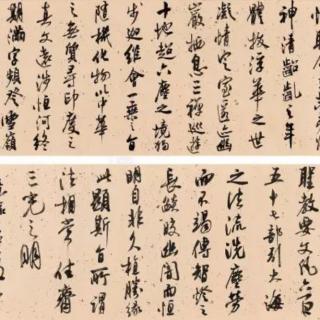 神清齠齔之年
體拔浮華之世
凝情定室匿迹
巖栖息三禪巡遊
十地超六塵之境獨
步迦維會一乘之旨
隨機化物以中華
之無質尋印度之
真文遠涉恒河終
期滿字頻登雪嶺
聖教要文凡六百
五十七部引大海
之法流洗塵勞
而不竭傳智燈之
長焰皎幽闇而恒
明自非久植勝緣
顯斯旨所謂
法相常住齊
三光之明